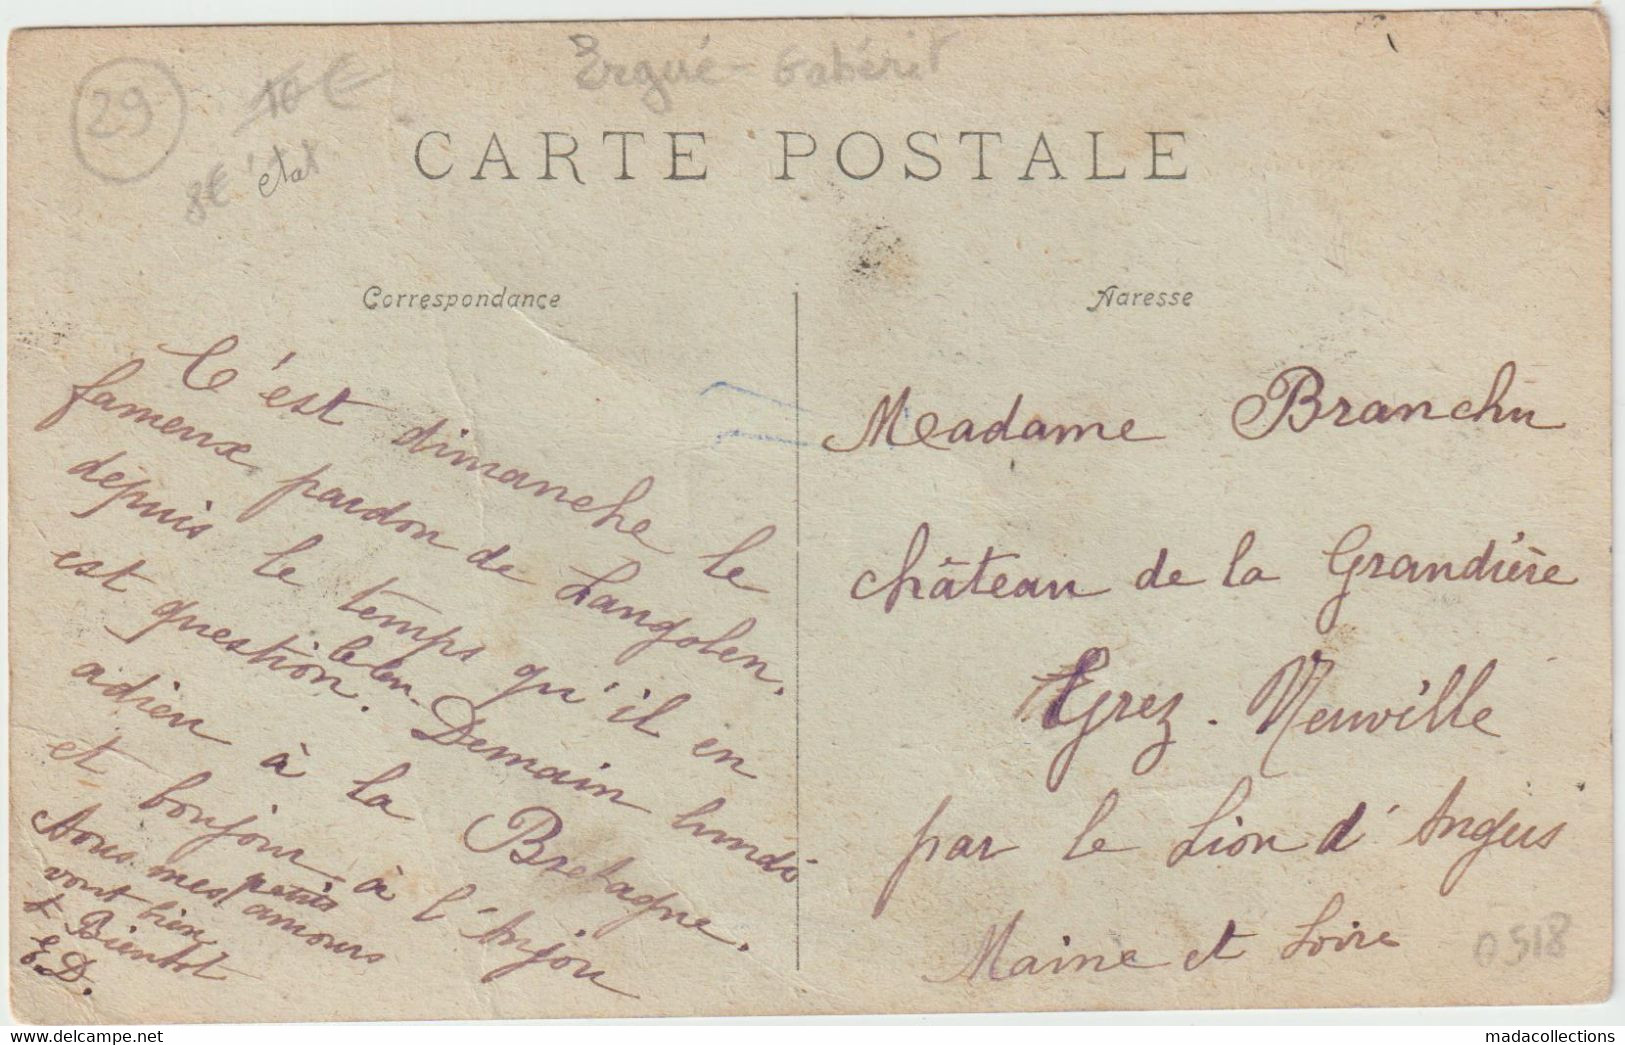 Ergué-Gabérit
29
10€
8€ état
CARTE POSTALE
Correspondance
Adresse
C'est dimanche le
fameux pardon de Langolen,
depuis le temps qu'il en
est question. Demain lundi
adieu à la Bretagne.
et bonjour à l'Anjou
tous mes petits amours
vont bien
à Bientot
E.D.
Madame Branchu
château de la Grandière
Grez-Neuville
par le Lion d'Angers
Maine et Loire
0518
delcampe.net
madacollections